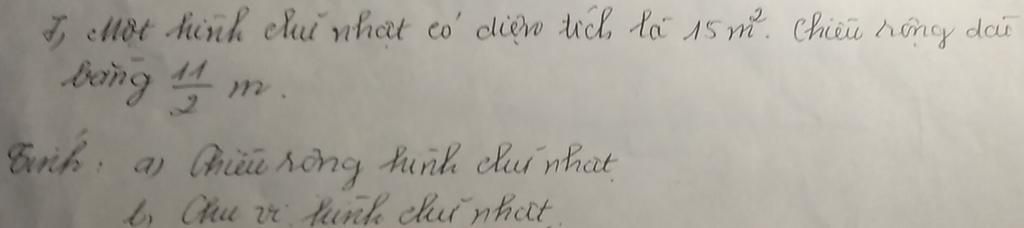 7, Một hình chữ nhật có diện tích là 15m². Chiều rộng dài
bằng 11/2 m.
Tính: a) Chiều rộng hình chữ nhật
b, Chu vi hình chữ nhật.